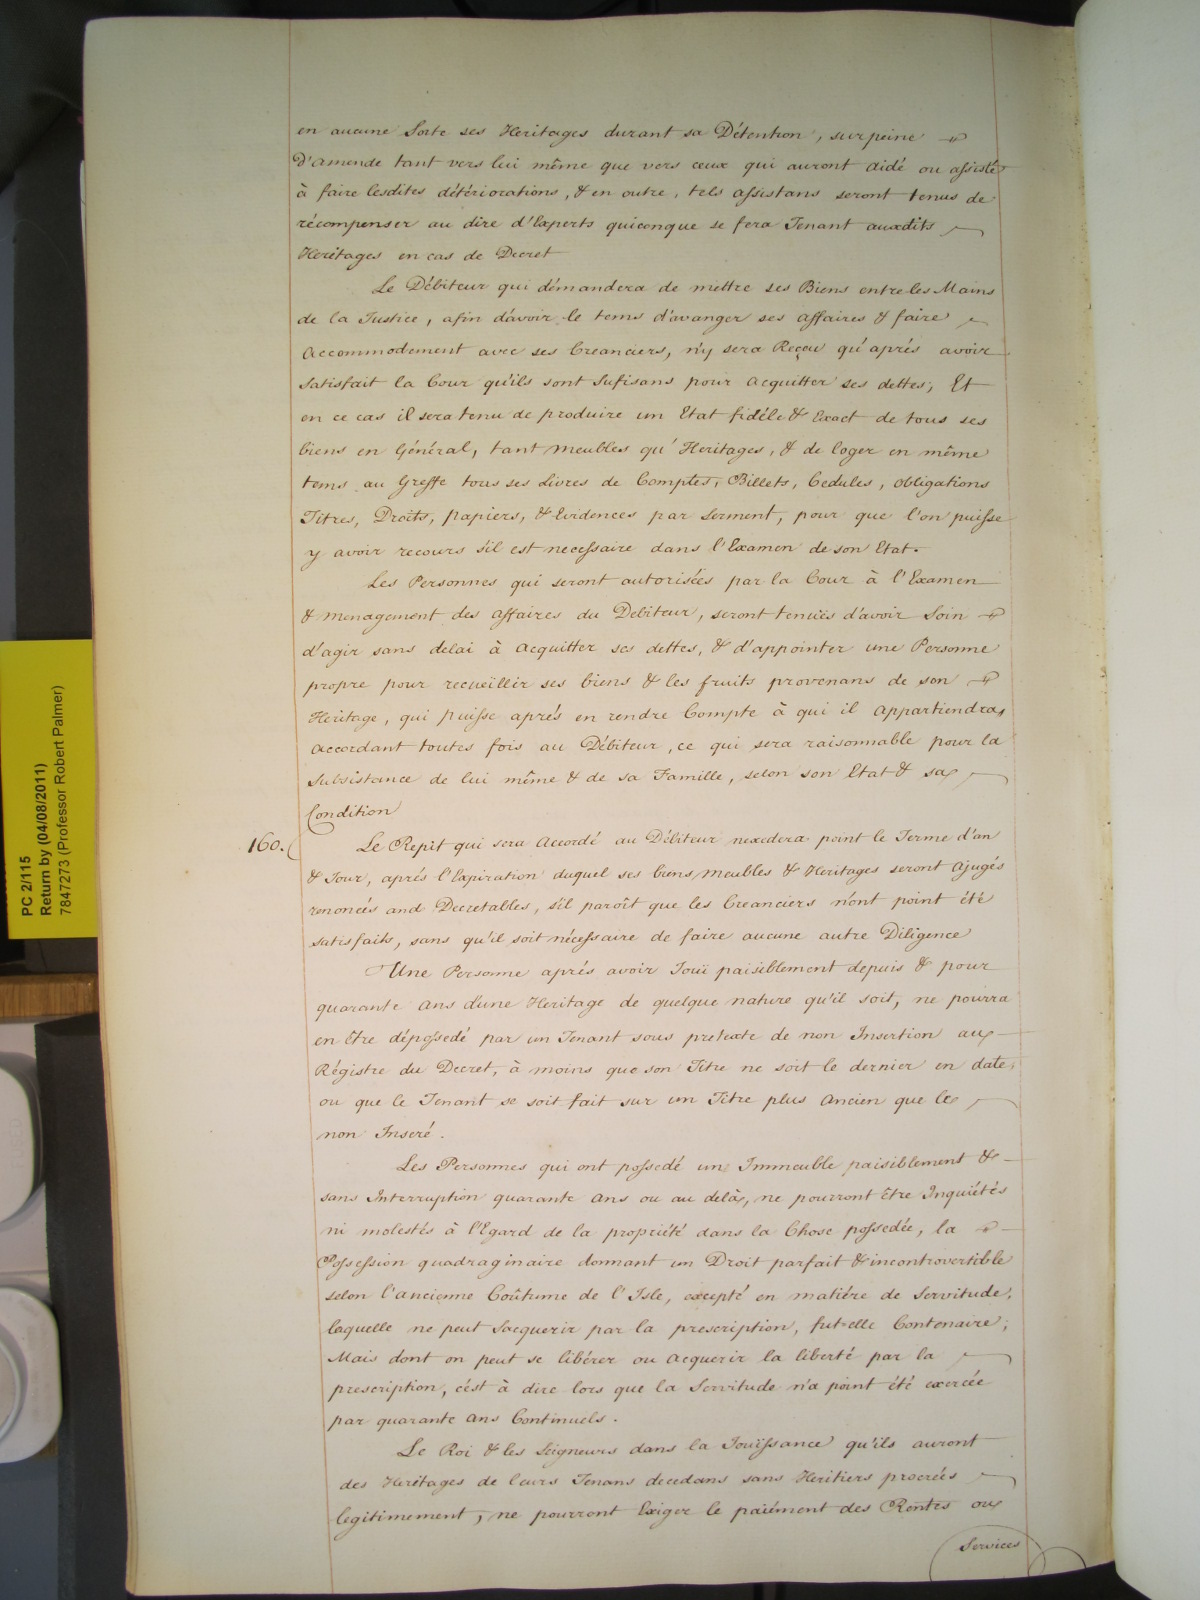 en aucune Sorte ses Heritages durant sa Détention, sur peine
D'amende tant vers lui même que vers ceux qui auront aidé ou assisté
à faire lesdites détériorations, & en outre, tels assistans seront tenus de
récompenser au dire d'Experts quiconque se fera Tenant auxdits
Heritages en cas de Decret
Le Débiteur qui démandera de mettre ses Biens entre les Mains
de la Justice, afin d'avoir le tems d'avanger ses affaires & faire
Accommodement avec ses Creanciers, n'y sera Reçeu qu'aprés avoir
Satisfait la Cour qu'ils sont Sufisans pour acquitter ses dettes; Et
en ce cas il sera tenu de produire un Etat fidéle & Exact de tous ses
biens en Général, tant Meubles qu'Heritages, & de loger en même
tems au Greffe tous ses Livres de Comptes, Billets, Cedules, obligations
Titres, Droits, papiers, & Evidences par Serment, pour que l'on puisse
y avoir recours s'il est necessaire dans l'Examen de son Etat.
Les Personnes qui seront autorisées par la Cour à l'Examen
& menagement des affaires du Debiteur, seront tenuës d'avoir Soin
d'agir sans delai à acquitter ses dettes, & d'appointer une Personne
propre pour recueillir ses biens & les fruits provenans de son
Heritage, qui puisse aprés en rendre Compte à qui il appartiendra,
accordant toutes fois au Débiteur, ce qui sera raisonnable pour la
Subsistance de lui même & de sa Famille, selon son Etat & sa
Condition
160. Le Repit qui sera accordé au Débiteur nexcedera point le Terme d'an
& Jour, aprés l'Expiration duquel ses biens Meubles & Heritages seront ajugés
renoncés and Decretables, s'il paroît que les Creanciers n'ont point été
satisfaits, sans qu'il soit nécessaire de faire aucune autre Diligence
Une Personne aprés avoir Jouï paisiblement depuis & pour
quarante ans d'une Heritage de quelque nature qu'il soit, ne pourra
en être dépossedé par un Tenant sous pretexte de non Insertion au
Régistre du Decret, à moins que son Titre ne soit le dernier en date,
ou que le Tenant se soit fait sur un Titre plus ancien que le
non Inseré.
Les Personnes qui ont possedé un Immeuble paisiblement &
sans Interruption quarante ans ou au delà, ne pourront être Inquiétés
ni molestés à l'Egard de la propriété dans la Chose possedée, la
Possession quadraginaire donnant un Droit parfait & incontrovertible
selon l'ancienne Coûtume de l'Isle, excepté en matiére de Servitude,
laquelle ne peut Sacquerir par la prescription, fut-elle Contenaire;
Mais dont on peut se libérer ou acquerir la liberté par la
prescription, c'est à dire lors que la Servitude n'a point été exercée
par quarante ans Continuels.
Le Roi & les Seigneurs dans la Jouïssance qu'ils auront
des Heritages de leurs Tenans decedans sans Heritiers procréés
legitimement, ne pourront Exiger le paiément des Rentes ou
Services
PC 2/115
Return by (04/08/2011)
7847273 (Professor Robert Palmer)